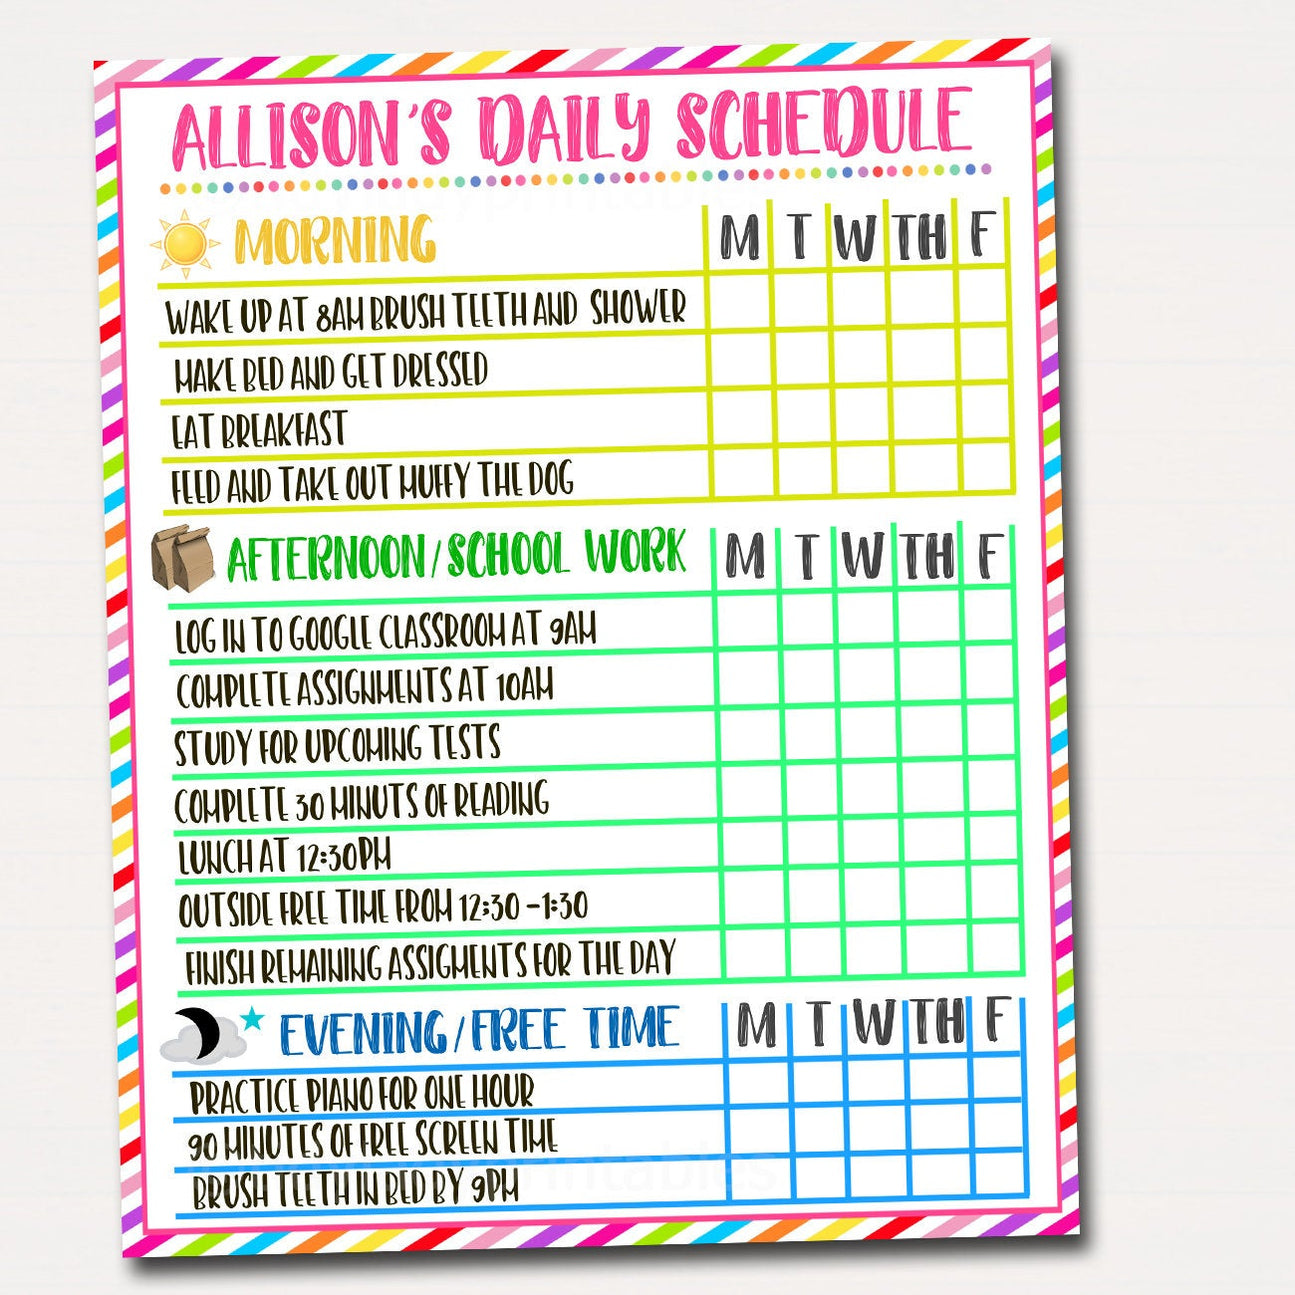 ALLISON'S DAILY SCHEDULE
MORNING M T W TH F
WAKE UP AT 8AM BRUSH TEETH AND SHOWER
MAKE BED AND GET DRESSED
EAT BREAKFAST
FEED AND TAKE OUT MUFFY THE DOG
AFTERNOON/SCHOOL WORK M T W TH F
LOG IN TO GOOGLE CLASSROOM AT 9AM
COMPLETE ASSIGNMENTS AT 10AM
STUDY FOR UPCOMING TESTS
COMPLETE 30 MINUTS OF READING
LUNCH AT 12:30PM
OUTSIDE FREE TIME FROM 12:30 -1:30
FINISH REMAINING ASSIGMENTS FOR THE DAY
EVENING/FREE TIME M T W TH F
PRACTICE PIANO FOR ONE HOUR
90 MINUTES OF FREE SCREEN TIME
BRUSH TEETH IN BED BY 9PM